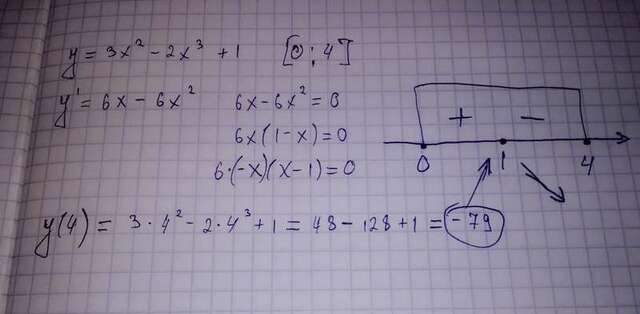 y = 3x² - 2x³ + 1 [0 ; 4]
y' = 6x - 6x² 6x - 6x² = 0
6x(1-x) = 0
6·(-x)(x-1) = 0
+ -
0 1 4
y(4) = 3·4² - 2·4³ + 1 = 48 - 128 + 1 = -79